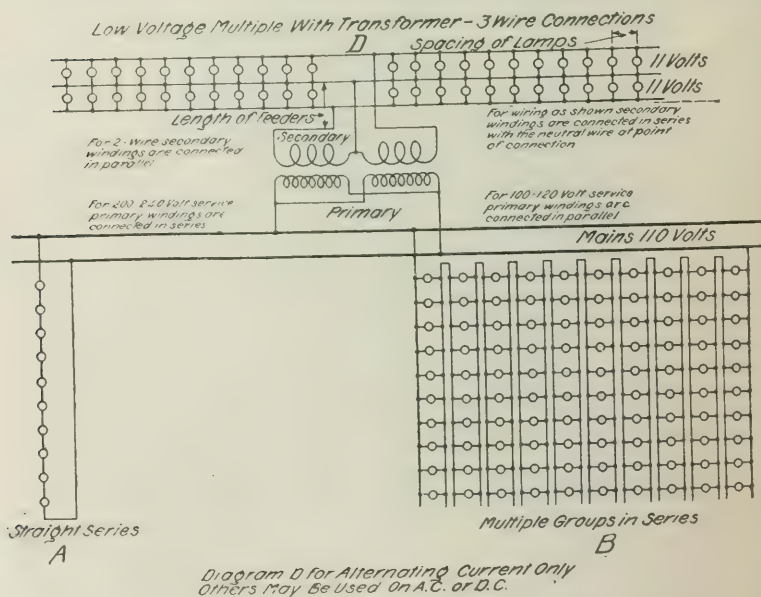 Low Voltage Multiple With Transformer - 3 Wire Connections
D
Spacing of Lamps
11 Volts
11 Volts
Length of Feeders
For 2-Wire secondary
windings are connected
in parallel
Secondary
For wiring as shown secondary
windings are connected in series
with the neutral wire at point
of connection
For 200-240 Volt service
primary windings are
connected in series
Primary
For 100-120 Volt service
primary windings are
connected in parallel
Mains 110 Volts
Straight Series
A
Multiple Groups in Series
B
Diagram D for Alternating Current Only
Others May Be Used On A.C. or D.C.